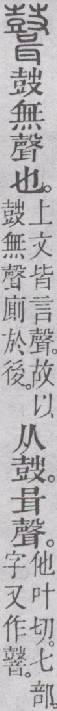 鼓無聲也。
上文皆言聲。故以
鼓無聲廁於後。
从鼓。咠聲。
他叶切。七部。
字又作